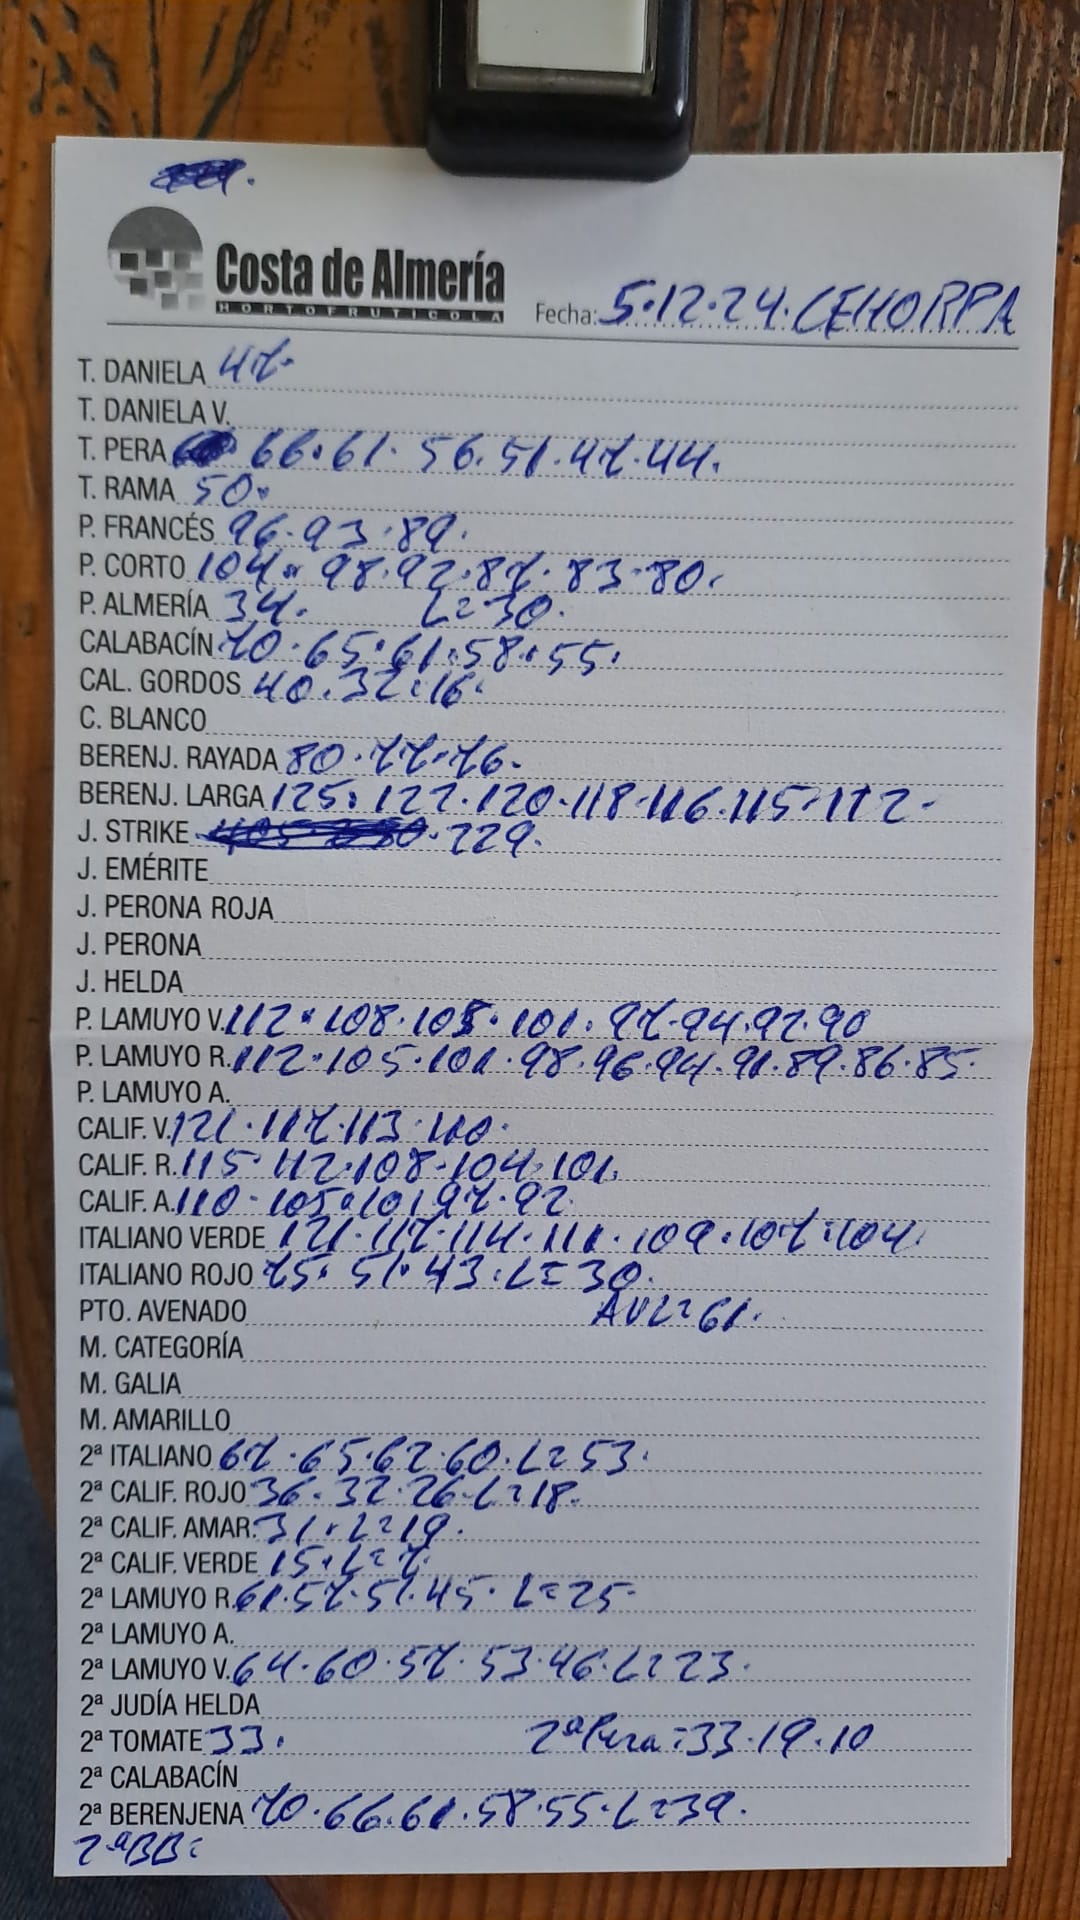 Costa de Almería
HORTOFRUTICOLA
Fecha: 5.12.24. CEHORPA
T. DANIELA 47.
T. DANIELA V.
T. PERA 66.61.56.51.47.44.
T. RAMA 50.
P. FRANCÉS 96.93.89.
P. CORTO 104.98.92.87.83.80.
P. ALMERÍA 34. L=30.
CALABACÍN 70.65.61.58.55.
CAL. GORDOS 40.32.16.
C. BLANCO
BERENJ. RAYADA 80.77.76.
BERENJ. LARGA 125.122.120.118.116.115.112.
J. STRIKE 229.
J. EMÉRITE
J. PERONA ROJA
J. PERONA
J. HELDA
P. LAMUYO V. 112.108.105.101.97.94.92.90
P. LAMUYO R. 112.105.101.98.96.94.91.89.86.85.
P. LAMUYO A.
CALIF. V. 121.117.113.110.
CALIF. R. 115.112.108.104.101.
CALIF. A. 110.105.101.97.92.
ITALIANO VERDE 121.117.114.111.109.107.104.
ITALIANO ROJO 75.51.43.L=30.
PTO. AVENADO AVL=61.
M. CATEGORÍA
M. GALIA
M. AMARILLO
2ª ITALIANO 67.65.62.60.L=53.
2ª CALIF. ROJO 36.32.26.L=18.
2ª CALIF. AMAR. 31.L=19.
2ª CALIF. VERDE 15.L=7.
2ª LAMUYO R. 61.57.51.45.L=25.
2ª LAMUYO A.
2ª LAMUYO V. 64.60.57.53.46.L=23.
2ª JUDÍA HELDA
2ª TOMATE 33. 2ª Pera=33.19.10
2ª CALABACÍN
2ª BERENJENA 70.66.61.58.55.L=39.
2ªBB=